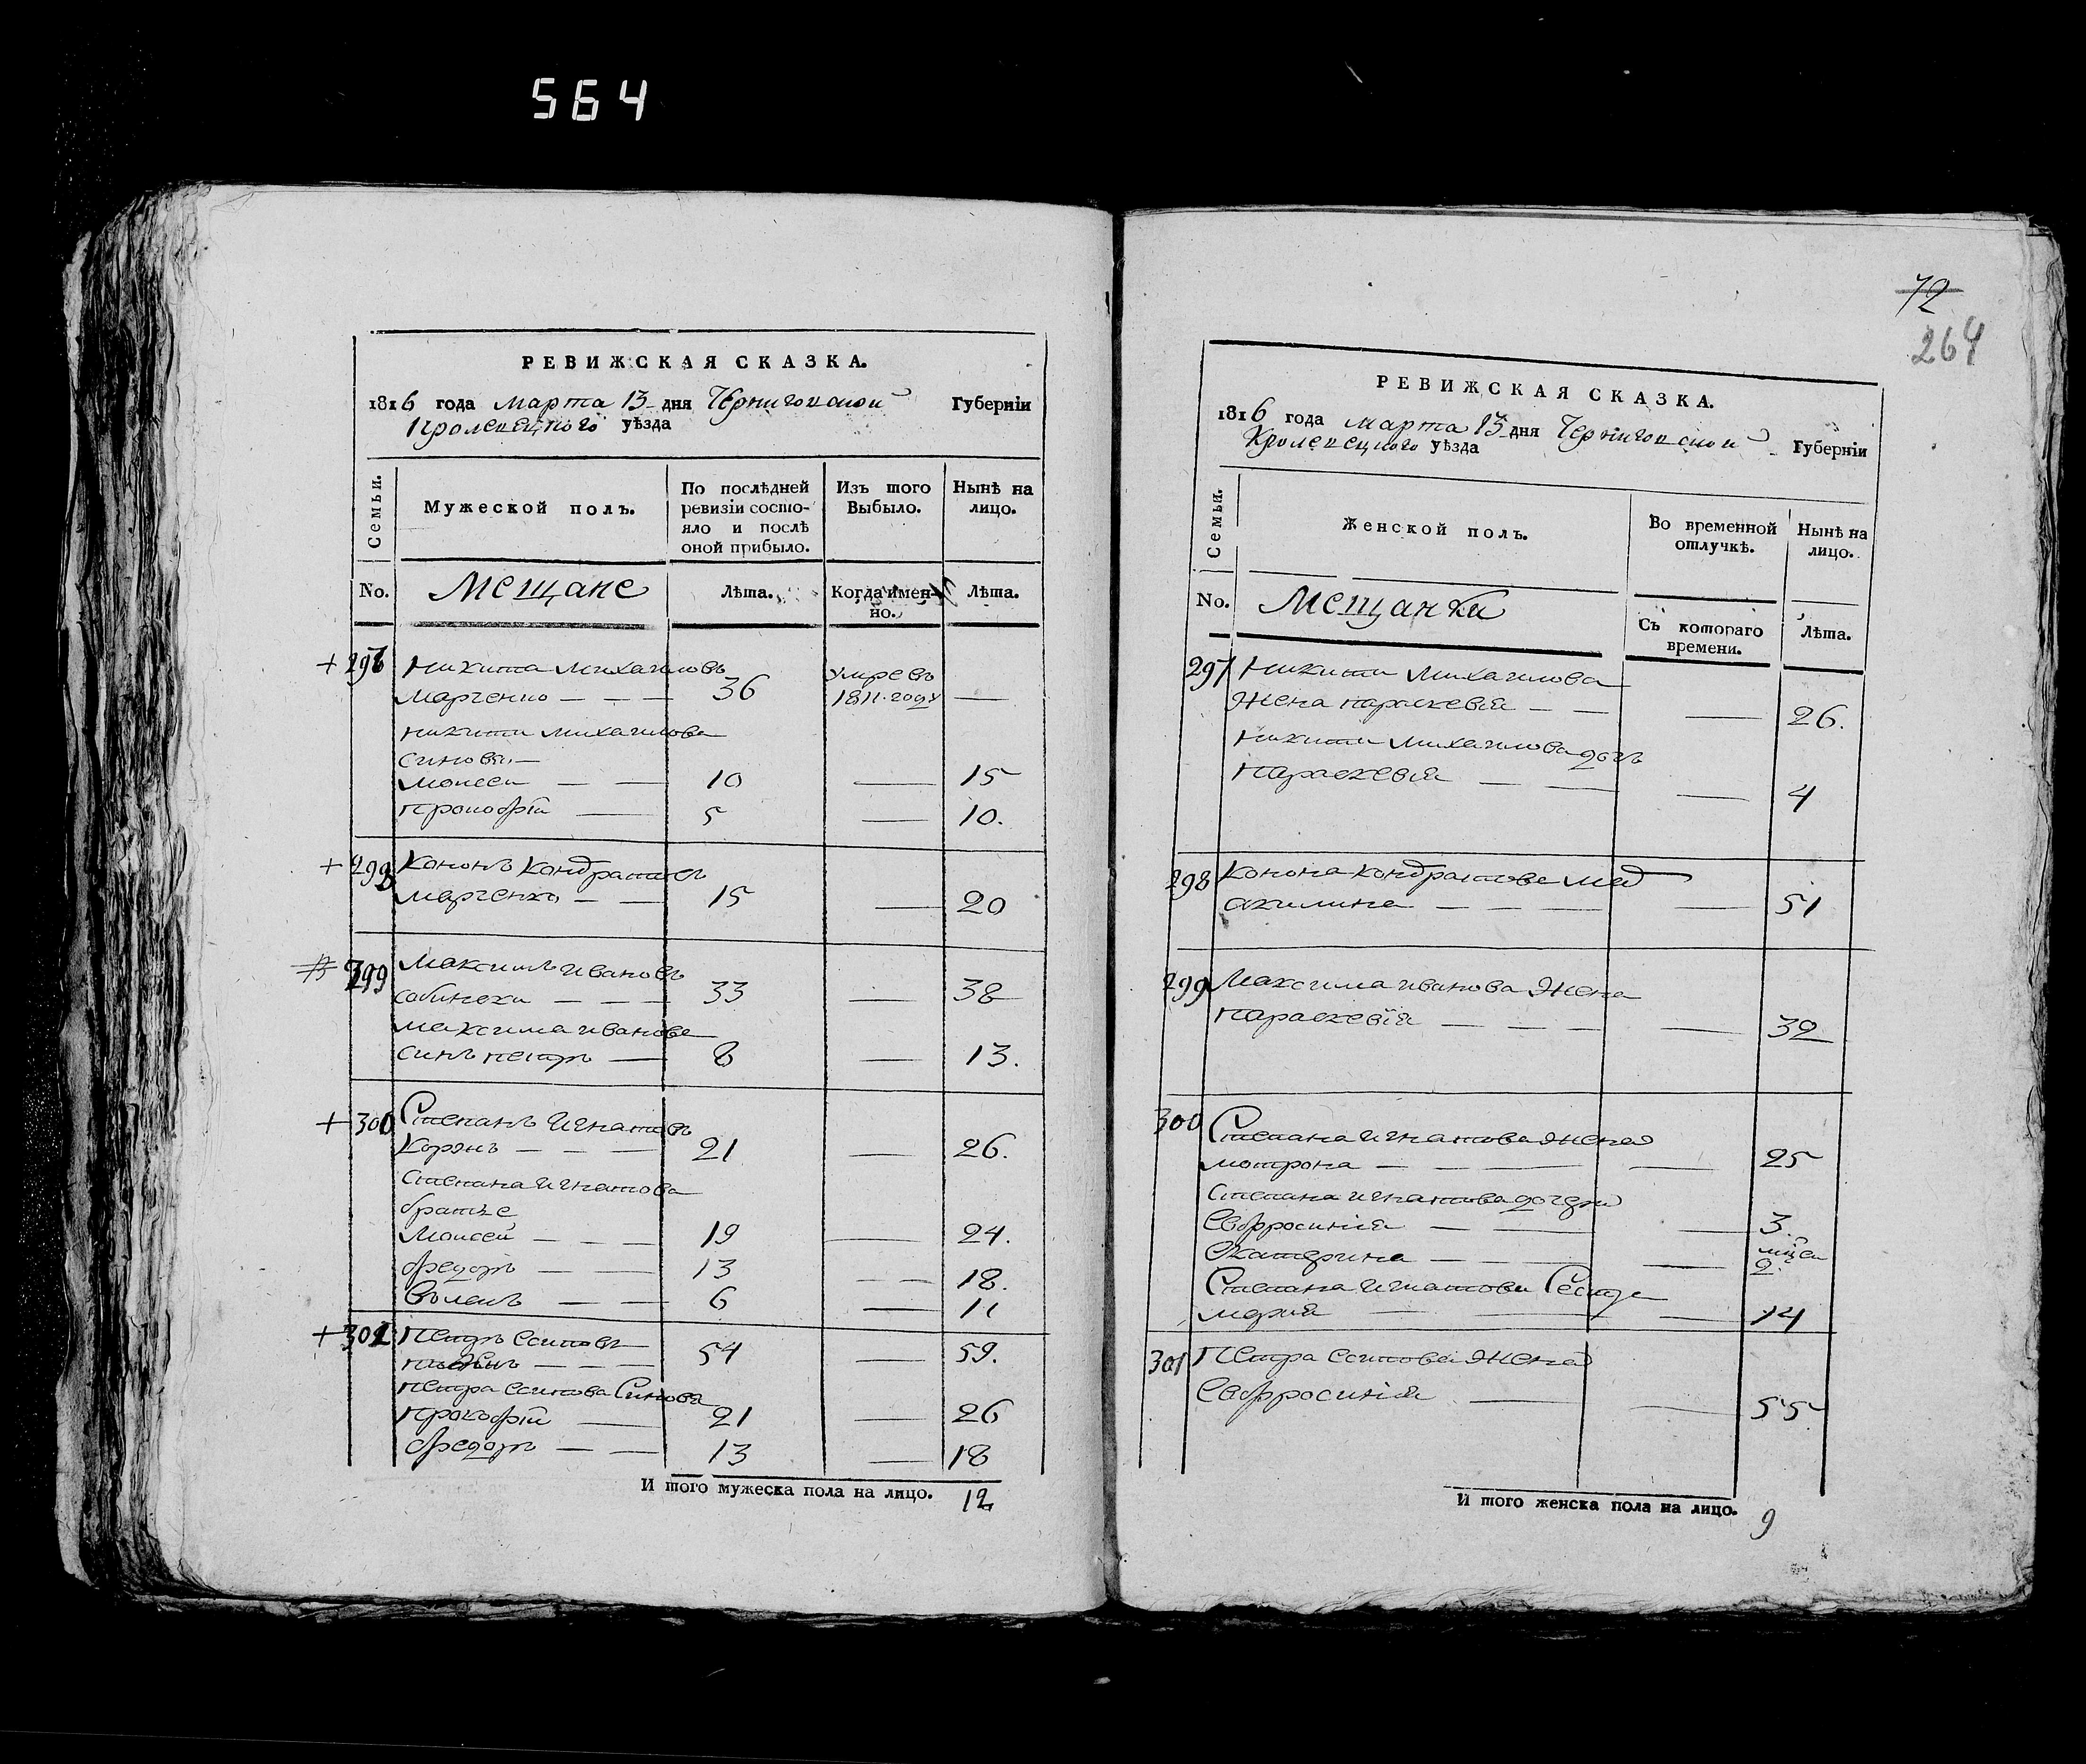 564
РЕВИЖСКАЯ СКАЗКА.
1816 года марта 13 дня Черниговской Губерніи
Кролевецкого уѣзда
Семьи.
Мужеской полъ.
По послѣдней ревизіи состояло и послѣ оной прибыло.
Изъ того Выбыло.
Нынѣ на лицо.
No. Мещане Лѣта. Когда именно. Лѣта.
+ 297 Никита Михайловъ
Марченко — — — 36 умре въ 1811. году —
Никити Михайлова
синовя —
Моисей — — 10 — 15
Прокофій — 5 — 10.
+ 298 Кононъ Кондратовъ
Марченко — — 15 — 20
299 Максимъ Ивановъ
— — — 33 — 38
Максима Иванова
синъ Петръ — 8 — 13.
+ 300 Степанъ Игнатовъ
— — — 21 — 26.
Степана Игнатова
братье
Моисей — — — 19 — 24.
Федоръ — — 13 — 18.
— — 6 — 11
+ 301 Петръ Есиповъ
— — — 54 — 59.
Петра Есипова Синовя
Прокофій — 21 — 26
Федоръ — — 13 — 18
И того мужеска пола на лицо. 12
72
264
РЕВИЖСКАЯ СКАЗКА.
1816 года марта 13 дня Черниговской Губерніи
Кролевецкого уѣзда
Семьи.
Женской полъ.
Во временной отлучкѣ.
Нынѣ на лицо.
No. Мещанки Съ котораго времени. Лѣта.
297 Никити Михайлова
Жена Параскевія — — — 26.
Никити Михайлова дочь
Параскевія — — — 4
298 Конона Кондратова
Акилина — — — — 51
299 Максима Иванова Жена
Параскевія — — — — 32
300 Степана Игнатова жена
Мотрона — — — — 25
Степана Игнатова дочери
Евфросинія — — — 3.
Екатерина — — — 2.
Степана Игнатова Сестра
Марія — — — 14
301 Петра Есипова Жена
Евфросинія — — 55.
И того женска пола на лицо. 9